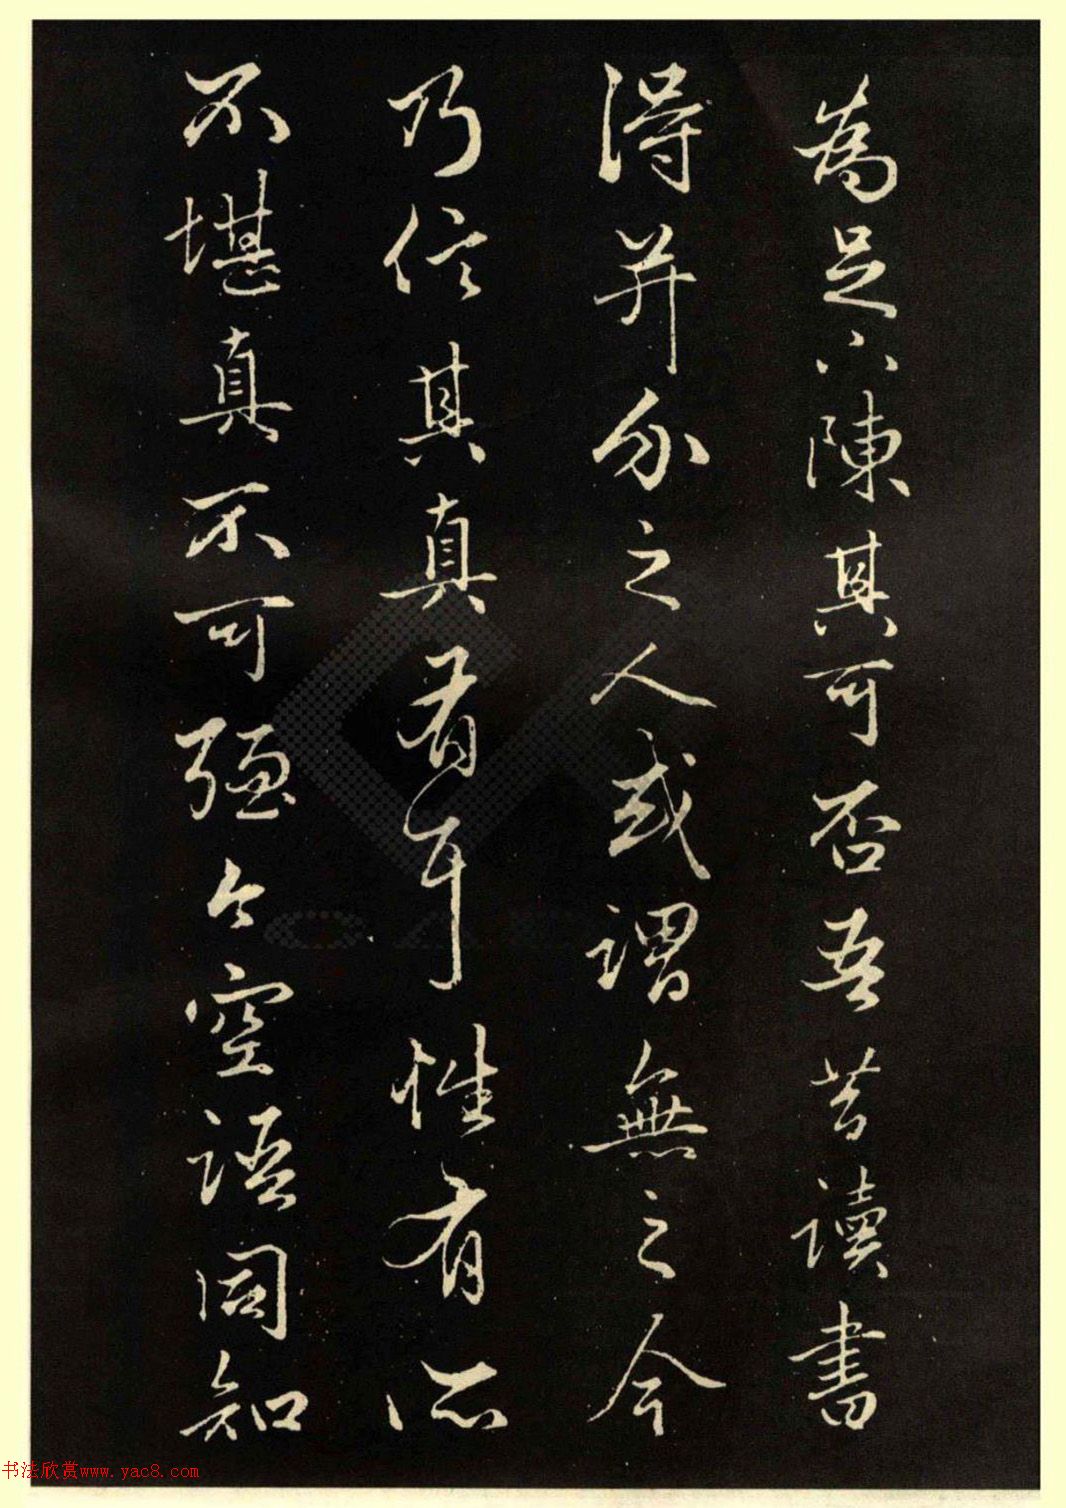 為足下陳其可否吾昔讀書
得并介之人或謂無之今
乃信其真有耳性有所
不堪真不可強今空語同知
书法欣赏www.yac8.com